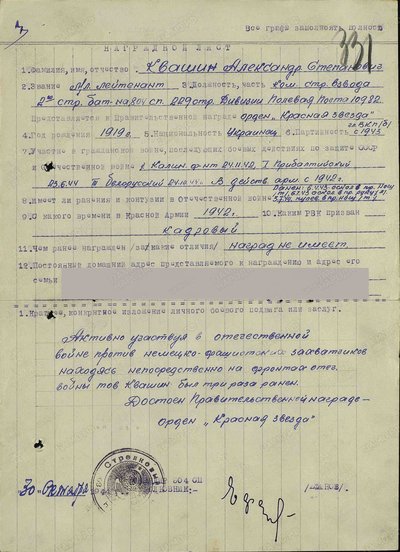 Все графы заполнять полностью
331
НАГРАДНОЙ ЛИСТ
1. Фамилия, имя, отчество Квашин Александр Степанович
2. Звание мл. лейтенант 3. Должность, часть ком. стр. взвода
2го стр. бат-на 804 сп. 229 стр. Дивизии Полевая Почта 10982.
Представляется к Правительственной награде орден „Красная звезда"
4. Год рождения 1919 г. 5. Национальность Украинец 6. Партийность чл ВКП/б/ с 1943
7. Участие в гражданской войне, последующих боевых действиях по защите СССР
и отечественной войне 1 Калин. ф-нт 24.11.42. 1 Прибалтийский
25.6.44 III Белорусский 24.10.44. В действ арм с 1942 г.
8. Имеет ли ранения и контузии в отечественной войне
9. С какого времени в Красной Армии 1942 г. 10. Каким РВК призван
Кадровый
11. Чем ранее награжден /за какие отличия/ наград не имеет.
12. Постоянный домашний адрес представляемого к награждению и адрес его
семьи
1. Краткое, конкретное изложение личного боевого подвига или заслуг.
Активно участвуя в отечественной
войне против немецко-фашистских захватчиков
находясь непосредственно на фронтах отеч.
войны тов Квашин был три раза ранен.
Достоен Правительственной награде -
орден „Красная звезда"
30 Октября
804 СП